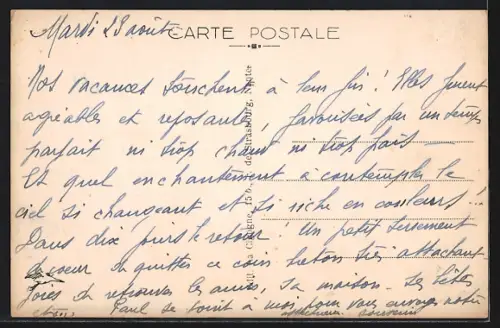 Mardi 23 août
CARTE POSTALE
Nos vacances touchent à leur fin ! Elles furent
agréables et reposantes, favorisées par un temps
parfait ni trop chaud ni trop frais —
Et quel enchantement à contempler le
ciel si changeant et si riche en couleurs !!
Dans dix jours le retour ! Un petit serrement
de coeur de quitter ce coin breton très attachant
joies de retrouver les amis, sa maison. Les bêtes
Paul se joint à moi pour vous envoyer notre
affectueux souvenir
de Strasbourg,